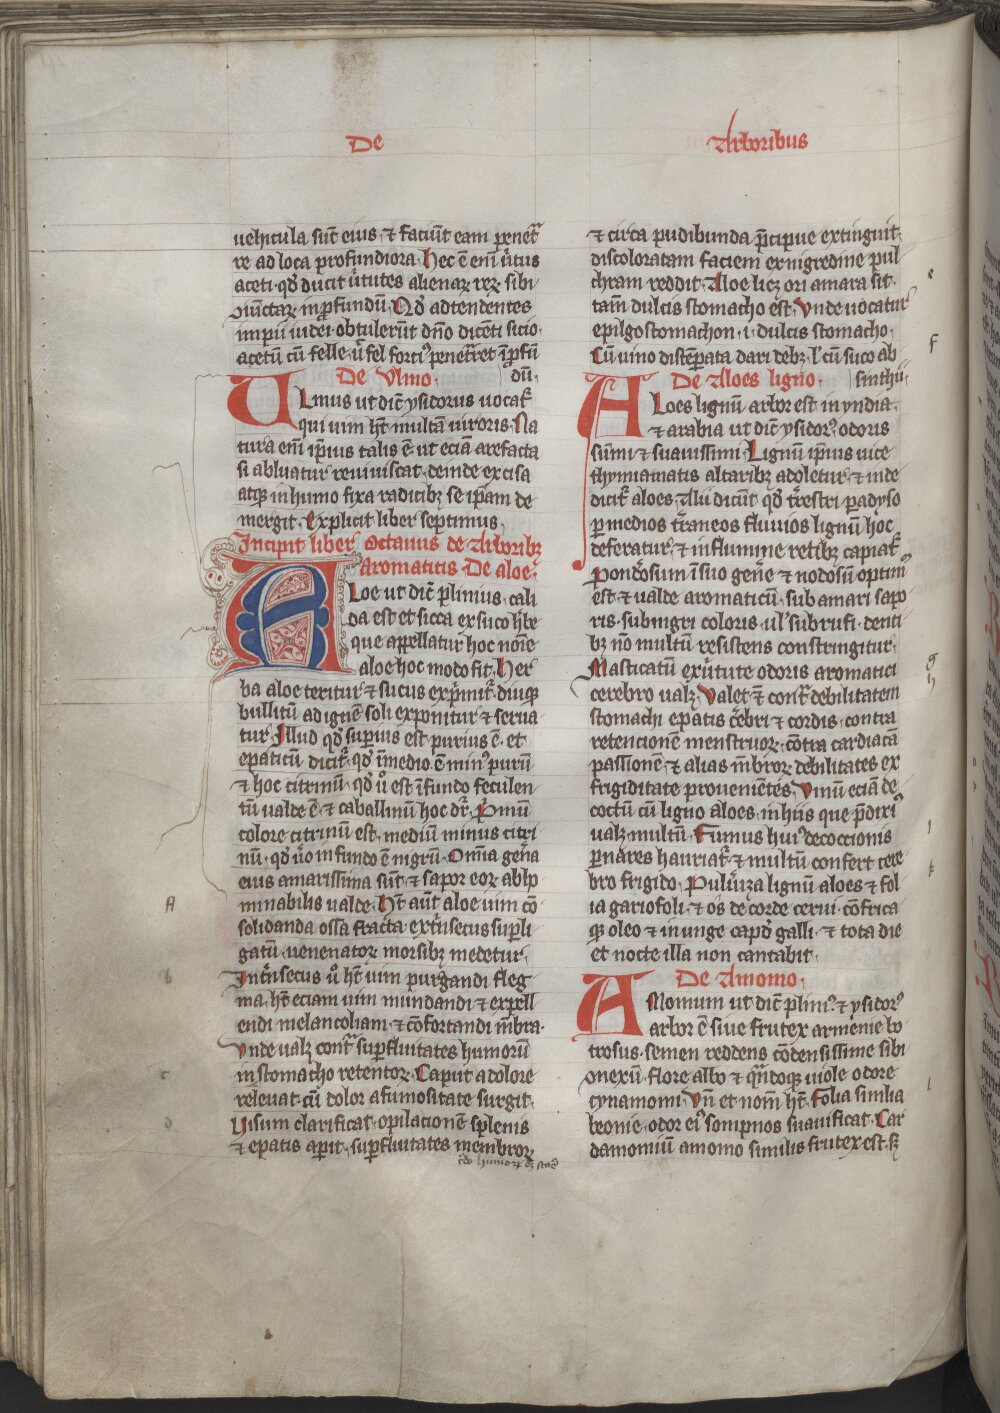 De Arboribus
uehicula su̅t eius ⁊ faciu̅t eam penet͛
re ad loca profundiora. Hec e̅ eni̅ u̓tus
aceti. qd̓ ducit u̓tutes alienaꝝ reꝝ sibi
ꝯiu̅ctaꝝ in ꝓfundu̅. Qd̓ adtendentes
impii iudei obtuleru̅t dn̅o dice̅ti sicio.
acetu̅ cu̅ felle. ut̓ fel forti᷒ penet͛ret i̅ ꝓfu̅
De Vlmo. du̅.
ULmus ut dic̅t ysidorus uocat᷑
qui uim h̅t multa̅ uiroris. Na
tura eni̅ ip̅ius talis e̅. ut ecia̅ arefacta
si abluatur reuiuiscat. deinde excisa
atqꝫ in humo fixa radicibꝫ se ip̅am de
mergit. Explicit liber septimus.
Incipit liber octauus de Arboribꝫ
Aromaticis De aloe.
ALoe ut dic̅t plinius. cali
da est et sicca ex suco h̓be
que appellatur hoc noi̅e
aloe hoc modo fit. Her
ba aloe teritur ⁊ sucus exp̓mit᷑. diuqꝫ
bullitu̅ ad igne̅ soli exponitur ⁊ serua
tur. Illud qd̓ suꝑius est purius e̅. et
epaticu̅ dicit᷑. qd̓ i̅ medio e̅ min᷒ puru̅
⁊ hoc citrinu̅. qd̓ u̓ est i̅ fundo feculen
tu̅ ualde e̅ ⁊ caballinu̅ hoc dr̅. P̓mu̅
colore citrinu̅ est. mediu̅ minus citri
nu̅. qd̓ u̓o in fundo e̅ nigru̅. Om̅ia gen̅a
eius amarissima su̅t. ⁊ sapor eoꝝ abho
minabilis ualde. H̅t aut̅ aloe uim co̅
solidanda ossa fracta. ext̓nsecus suꝑli
gatu̅. uenenatoꝝ morsibꝫ medetur.
Int̓nsecus u̓ h̅t uim purgandi fleg
ma. h̅t eciam uim mundandi ⁊ expell
endi melancoliam. ⁊ co̅fortandi m̅bra.
Vnde ualꝫ cont͛ suꝑfluitates humoru̅
in stomacho retentoꝝ. Caput a dolore
releuat. cu̅ dolor a fumositate surgit.
Uisum clarificat. opilacione̅ splenis
⁊ epatis aꝑit. suꝑfluitates membroꝝ
⁊ circa pudibunda p̅cipue extinguit.
discoloratam faciem ex nigredine pul
chram reddit. Aloe licꝫ ori amara sit.
tam̅ dulcis stomacho est. Vnde uocatur
epilgostomachon. i. dulcis stomacho.
Cu̅ uino diste̅ꝑata dari debꝫ. l̓ cu̅ suco ab
De Aloes ligno. sinthii.
ALoes lignu̅ arbor est in yndia.
⁊ arabia ut dic̅t ysidor᷒. odoris
su̅mi ⁊ suauissimi. Lignu̅ ip̅ius uice
thymiamatis altaribꝫ adoletur. ⁊ inde
dicit᷑ aloes. Alii dicu̅t qd̓ t̓restri padyso
ꝑ medios t͛raneos fluuios lignu̅ hoc
deferatur. ⁊ in flumine retibꝫ capiat᷑.
Pond̓osum i̅ suo gen̓e ⁊ nodosu̅ optim᷒
est. ⁊ ualde aromaticu̅. sub amari sapo
ris. subnigri coloris. ul̓ subrufi. denti
bꝫ no̅ multu̅ resistens constringitur.
Masticatu̅ ex u̓tute odoris aromatici
cerebro ualꝫ. Valet ⁊ cont͛ debilitatem
stomachi epatis c̓ebri ⁊ cordis. contra
retencione̅ menstruoꝝ. co̅tra cardiaca̅
passione̅. ⁊ alias m̅broꝝ debilitates ex
frigiditate prouenie̅tes. Vinu̅ ecia̅ de
coctu̅ cu̅ ligno aloes. in hiis que p̅dixi᷒
ualꝫ multu̅. Fumus hui᷒ decoccionis
ꝑ nares hauriat᷑. ⁊ multu̅ confert cere
bro frigido. Puluiza lignu̅ aloes ⁊ fol
ia gariofoli. ⁊ os de corde cerui. co̅frica
qꝫ oleo ⁊ inunge capd̓ galli. ⁊ tota die
et nocte illa non cantabit.
De Amomo.
AMomum ut dic̅t plini᷒ ⁊ ysidor᷒
arbor e̅ siue frutex armenie bo
trosus. semen reddens co̅densissime sibi
ꝯnexu̅. flore albo ⁊ qn̅doqꝫ uiole odore
cynamomi. Vn̅ et nom̅ h̅t. Folia similia
beonie. odor ei᷒ sompnos suauificat. Car
damomiu̅ amomo similis frutex est. sꝫ
A
b
c
d
e
f
g
h
i
k
l